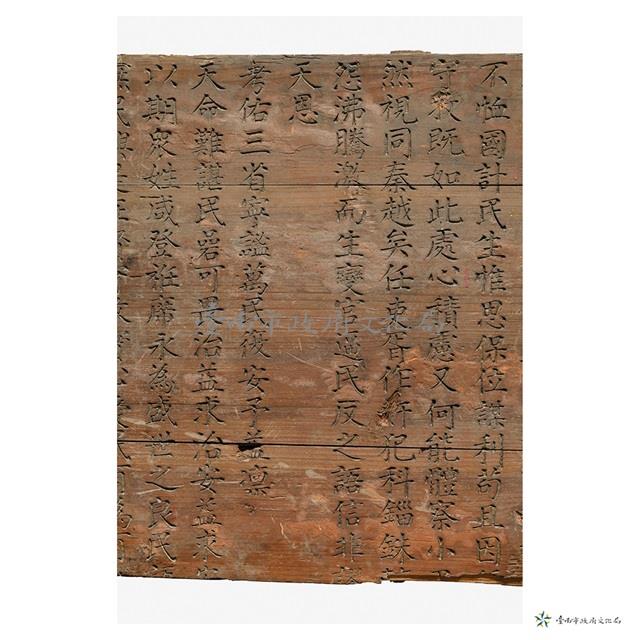 不恤國計民生惟思保位謀利苟且因
守牧既如此處心積慮又何能體察小
然視同秦越矣任吏胥作奸犯科錙銖
怨沸騰激而生變官逼民反之語信非
天恩
考佑三省寧謐萬民復安予益凜
天命難諶民碞可畏治益求治安益求
以期衆姓咸登袵席永為成世之良民
臺南市政府文化局
臺南市政府文化局